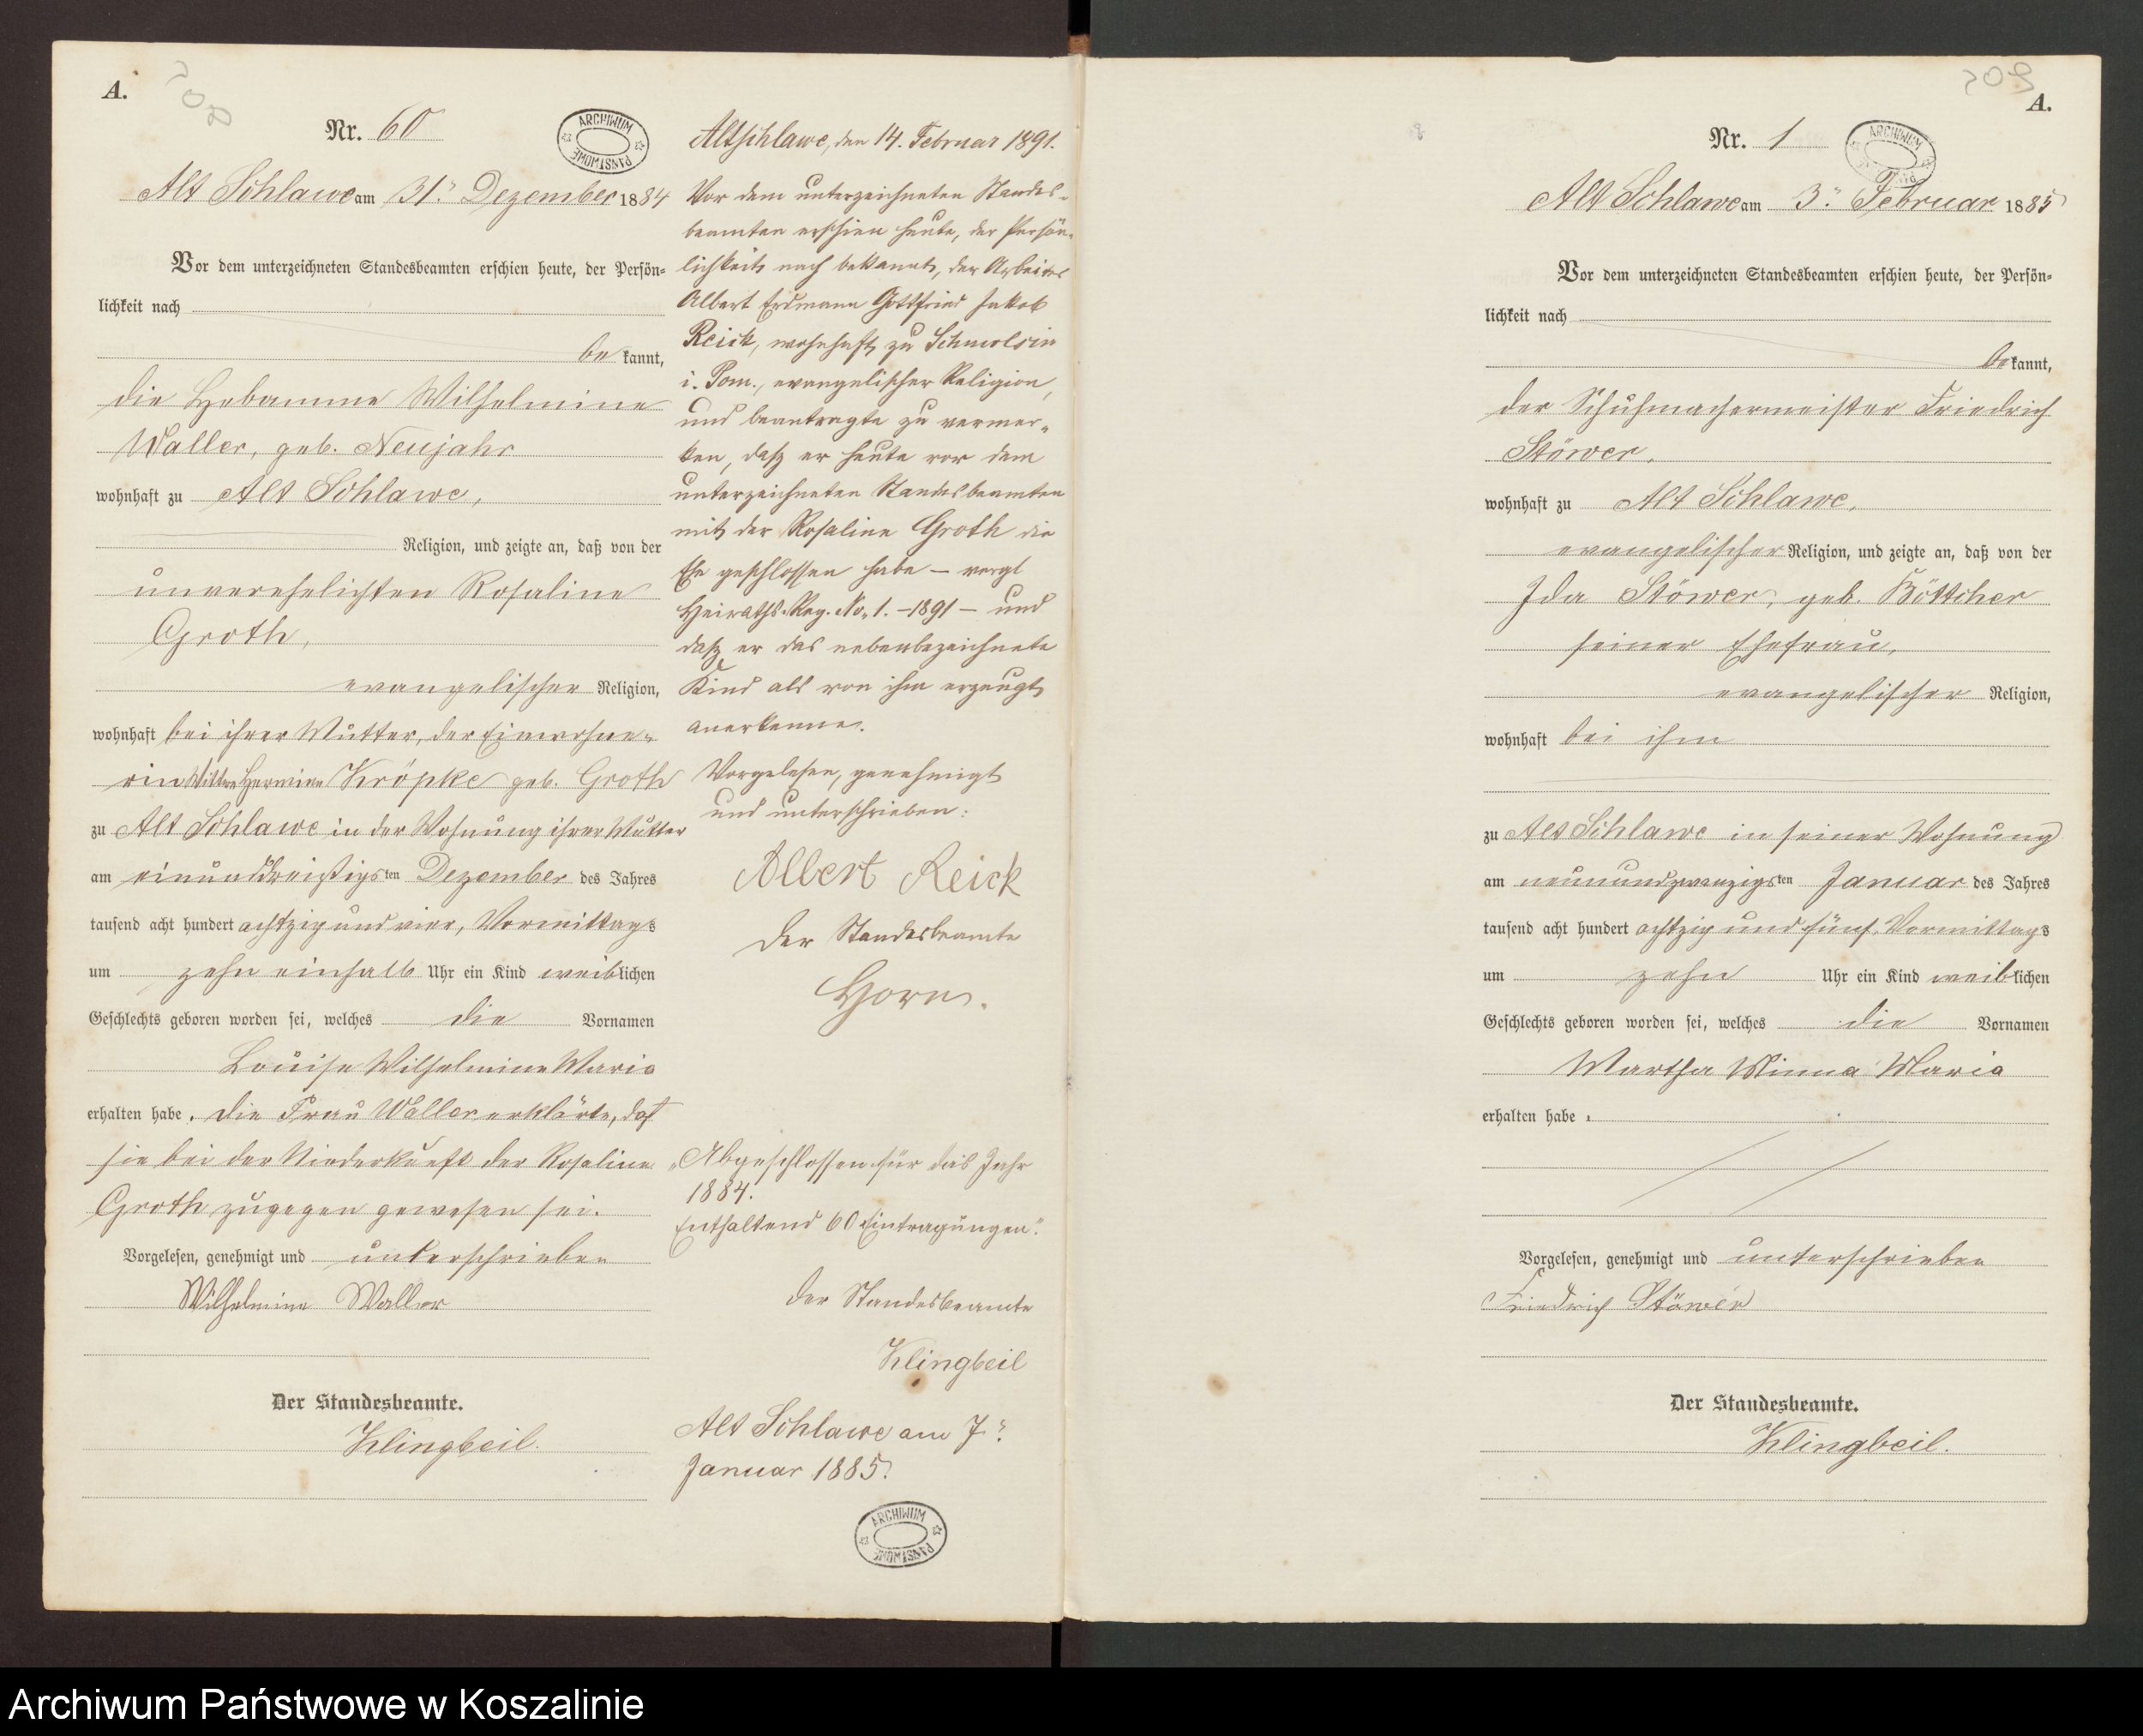 A.
Nr. 60
ARCHIWUM PAŃSTWOWE
Alt Schlawe am 31. Dezember 1884
Vor dem unterzeichneten Standesbeamten erschien heute, der Persön=
lichkeit nach
bekannt,
die Hebamme Wilhelmine
Waller, geb. Neujahr
wohnhaft zu Alt Schlawe,
Religion, und zeigte an, daß von der
unverehelichten Rosaline
Groth,
evangelischer Religion,
wohnhaft bei ihrer Mutter, der Einwohne-
rin Wittwe Hermine Kröpke geb. Groth
zu Alt Schlawe in der Wohnung ihrer Mutter
am einunddreißigsten Dezember des Jahres
tausend acht hundert achtzig und vier, Vormittags
um zehn einhalb Uhr ein Kind weiblichen
Geschlechts geboren worden sei, welches die Vornamen
Louise Wilhelmine Maria
erhalten habe. Die Frau Waller erklärte, daß
sie bei der Niederkunft der Rosaline
Groth zugegen gewesen sei.
Vorgelesen, genehmigt und unterschrieben
Wilhelmine Waller
Der Standesbeamte.
Klingbeil.
Altschlawe, den 14. Februar 1891.
Vor dem unterzeichneten Standes-
beamten erschien heute, der Persön-
lichkeit nach bekannt, der Arbeiter
Albert Erdmann Gottfried Jakob
Reick, wohnhaft zu Schmolsin
i. Pom., evangelischer Religion,
und beantragte zu vermer-
ken, daß er heute vor dem
unterzeichneten Standesbeamten
mit der Rosaline Groth die
Ehe geschlossen habe – vergl
Heiraths-Reg. No. 1. – 1891 – und
daß er das nebenbezeichnete
Kind als von ihm erzeugt
anerkenne.
Vorgelesen, genehmigt
und unterschrieben:
Albert Reick
Der Standesbeamte
Horn.
„Abgeschlossen für das Jahr
1884.
Enthaltend 60 Eintragungen."
Der Standesbeamte
Klingbeil
Alt Schlawe am 7.
Januar 1885.
ARCHIWUM PAŃSTWOWE
A.
Nr. 1
ARCHIWUM
Alt Schlawe am 3. Februar 1885
Vor dem unterzeichneten Standesbeamten erschien heute, der Persön=
lichkeit nach
bekannt,
der Schuhmachermeister Friedrich
Stöwer,
wohnhaft zu Alt Schlawe,
evangelischer Religion, und zeigte an, daß von der
Ida Stöwer, geb. Böttcher
seiner Ehefrau,
evangelischer Religion,
wohnhaft bei ihm
zu Alt Schlawe in seiner Wohnung
am neunundzwanzigsten Januar des Jahres
tausend acht hundert achtzig und fünf, Vormittags
um zehn Uhr ein Kind weiblichen
Geschlechts geboren worden sei, welches die Vornamen
Martha Minna Maria
erhalten habe.
Vorgelesen, genehmigt und unterschrieben
Friedrich Stöwer
Der Standesbeamte.
Klingbeil.
Archiwum Państwowe w Koszalinie